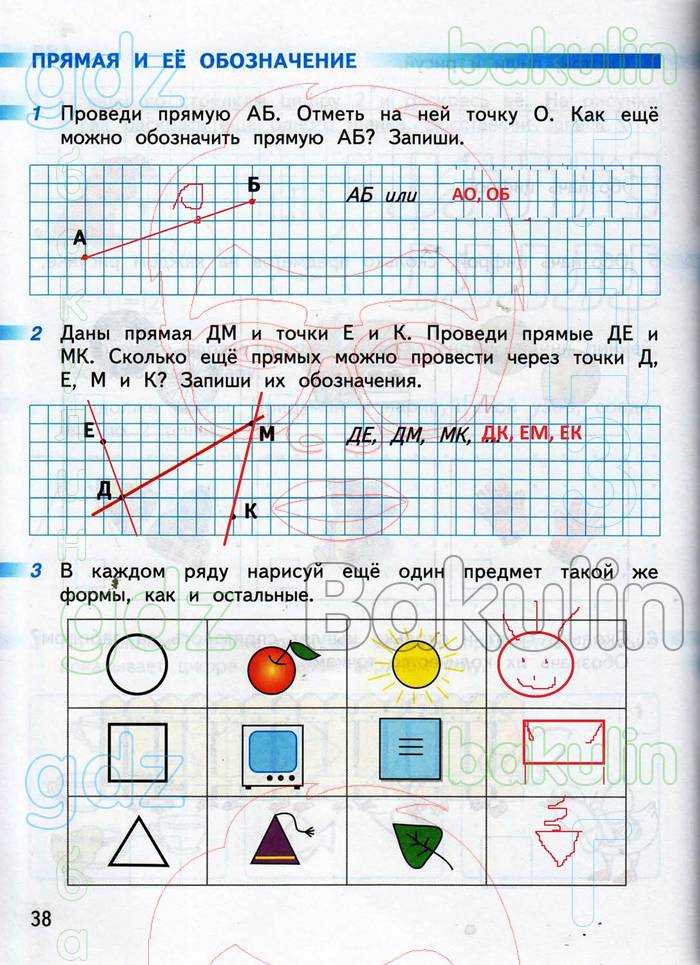 ПРЯМАЯ И ЕЁ ОБОЗНАЧЕНИЕ
bakulin
1 Проведи прямую АБ. Отметь на ней точку О. Как ещё
можно обозначить прямую АБ? Запиши.
А
О
Б
АБ или АО, ОБ
2 Даны прямая ДМ и точки Е и К. Проведи прямые ДЕ и
МК. Сколько ещё прямых можно провести через точки Д,
Е, М и К? Запиши их обозначения.
Е
М
Д
К
ДЕ, ДМ, МК, ... ДК, ЕМ, ЕК
3 В каждом ряду нарисуй ещё один предмет такой же
формы, как и остальные.
gdz Bakulin
gdz bakulin
38